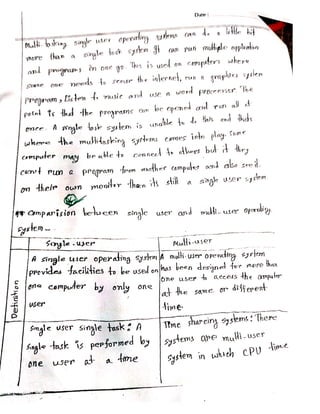 Date :
Multi-tasking single user operating systems can do a little bit
more than a single task system. It can run multiple application
and programs in one go. This is used on computers where
some one needs to the internet, run a graphics system
program, listen to music and use a word processor. The
point is that the programs can be opened and run all at
once. A single task system is unable to do this and thats
where the multitasking systems comes into play. Some
computer may be able to connect to others but if they
can't run a program from another computer and also see it
on their own monitor than its still a single user system
Comparision between single user and multi-user operating
system -
Single-user
Multi-user
Definition
A single user operating system
provides facilities to be used on
one computer by only one
user
A multi-user operating system
has been designed for more than
one user to access the computer
at the same or different
time.
Single user single task : A
single task is performed by
one user at a time
Time sharing systems : These
systems are multi-user
system in which CPU time